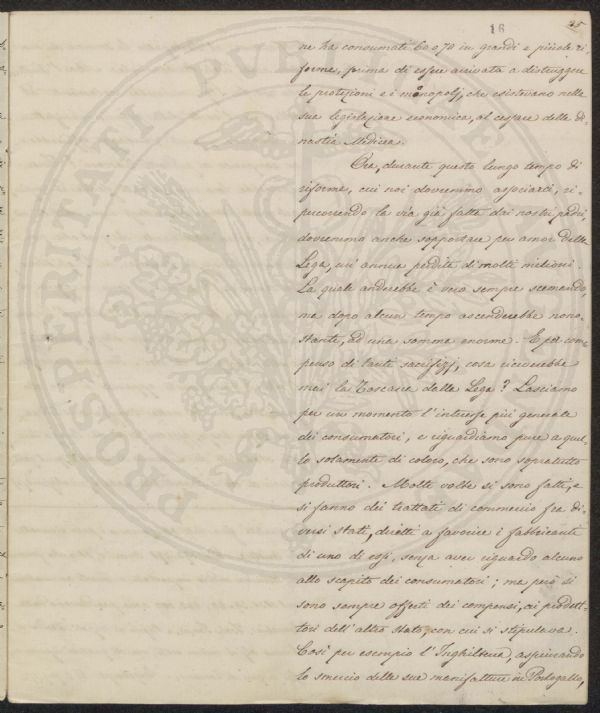 16
35
ne ha consumati 60 o 70 in grandi e piccole ri-
forme, prima di esser arrivata a distruggere
le protezioni e i monopolj, che esistevano nella
sua legislazione economica, al cessare della di-
nastia Medicea.
Ora, durante questo lungo tempo di
riforme, cui noi dovremmo associarci, ri-
percorrendo la via già fatta dai nostri padri,
dovremmo anche sopportare per amor della
Lega, un' annua perdita di molti milioni.
La quale anderebbe è vero sempre scemando,
ma dopo alcun tempo ascenderebbe nono-
stante, ad una somma enorme. E per com-
penso di tanti sacrifizj, cosa riceverebbe
mai la Toscana dalla Lega? Lasciamo
per un momento l'interesse più generale
dei consumatori, e riguardiamo pure a quel-
lo solamente di coloro, che sono sopratutto
produttori. Molte volte si sono fatti, e
si fanno dei trattati di commercio fra di-
versi stati, diretti a favorire i fabbricanti
di uno di essi, senza aver riguardo alcuno
allo scapito dei consumatori; ma però si
sono sempre offerti dei compensi, ai produt-
tori dell'altro stato, con cui si stipulava.
Così per esempio l'Inghilterra, aspirando
lo smercio delle sue manifatture in Portogallo,
PROSPERITATI PUBLICAE